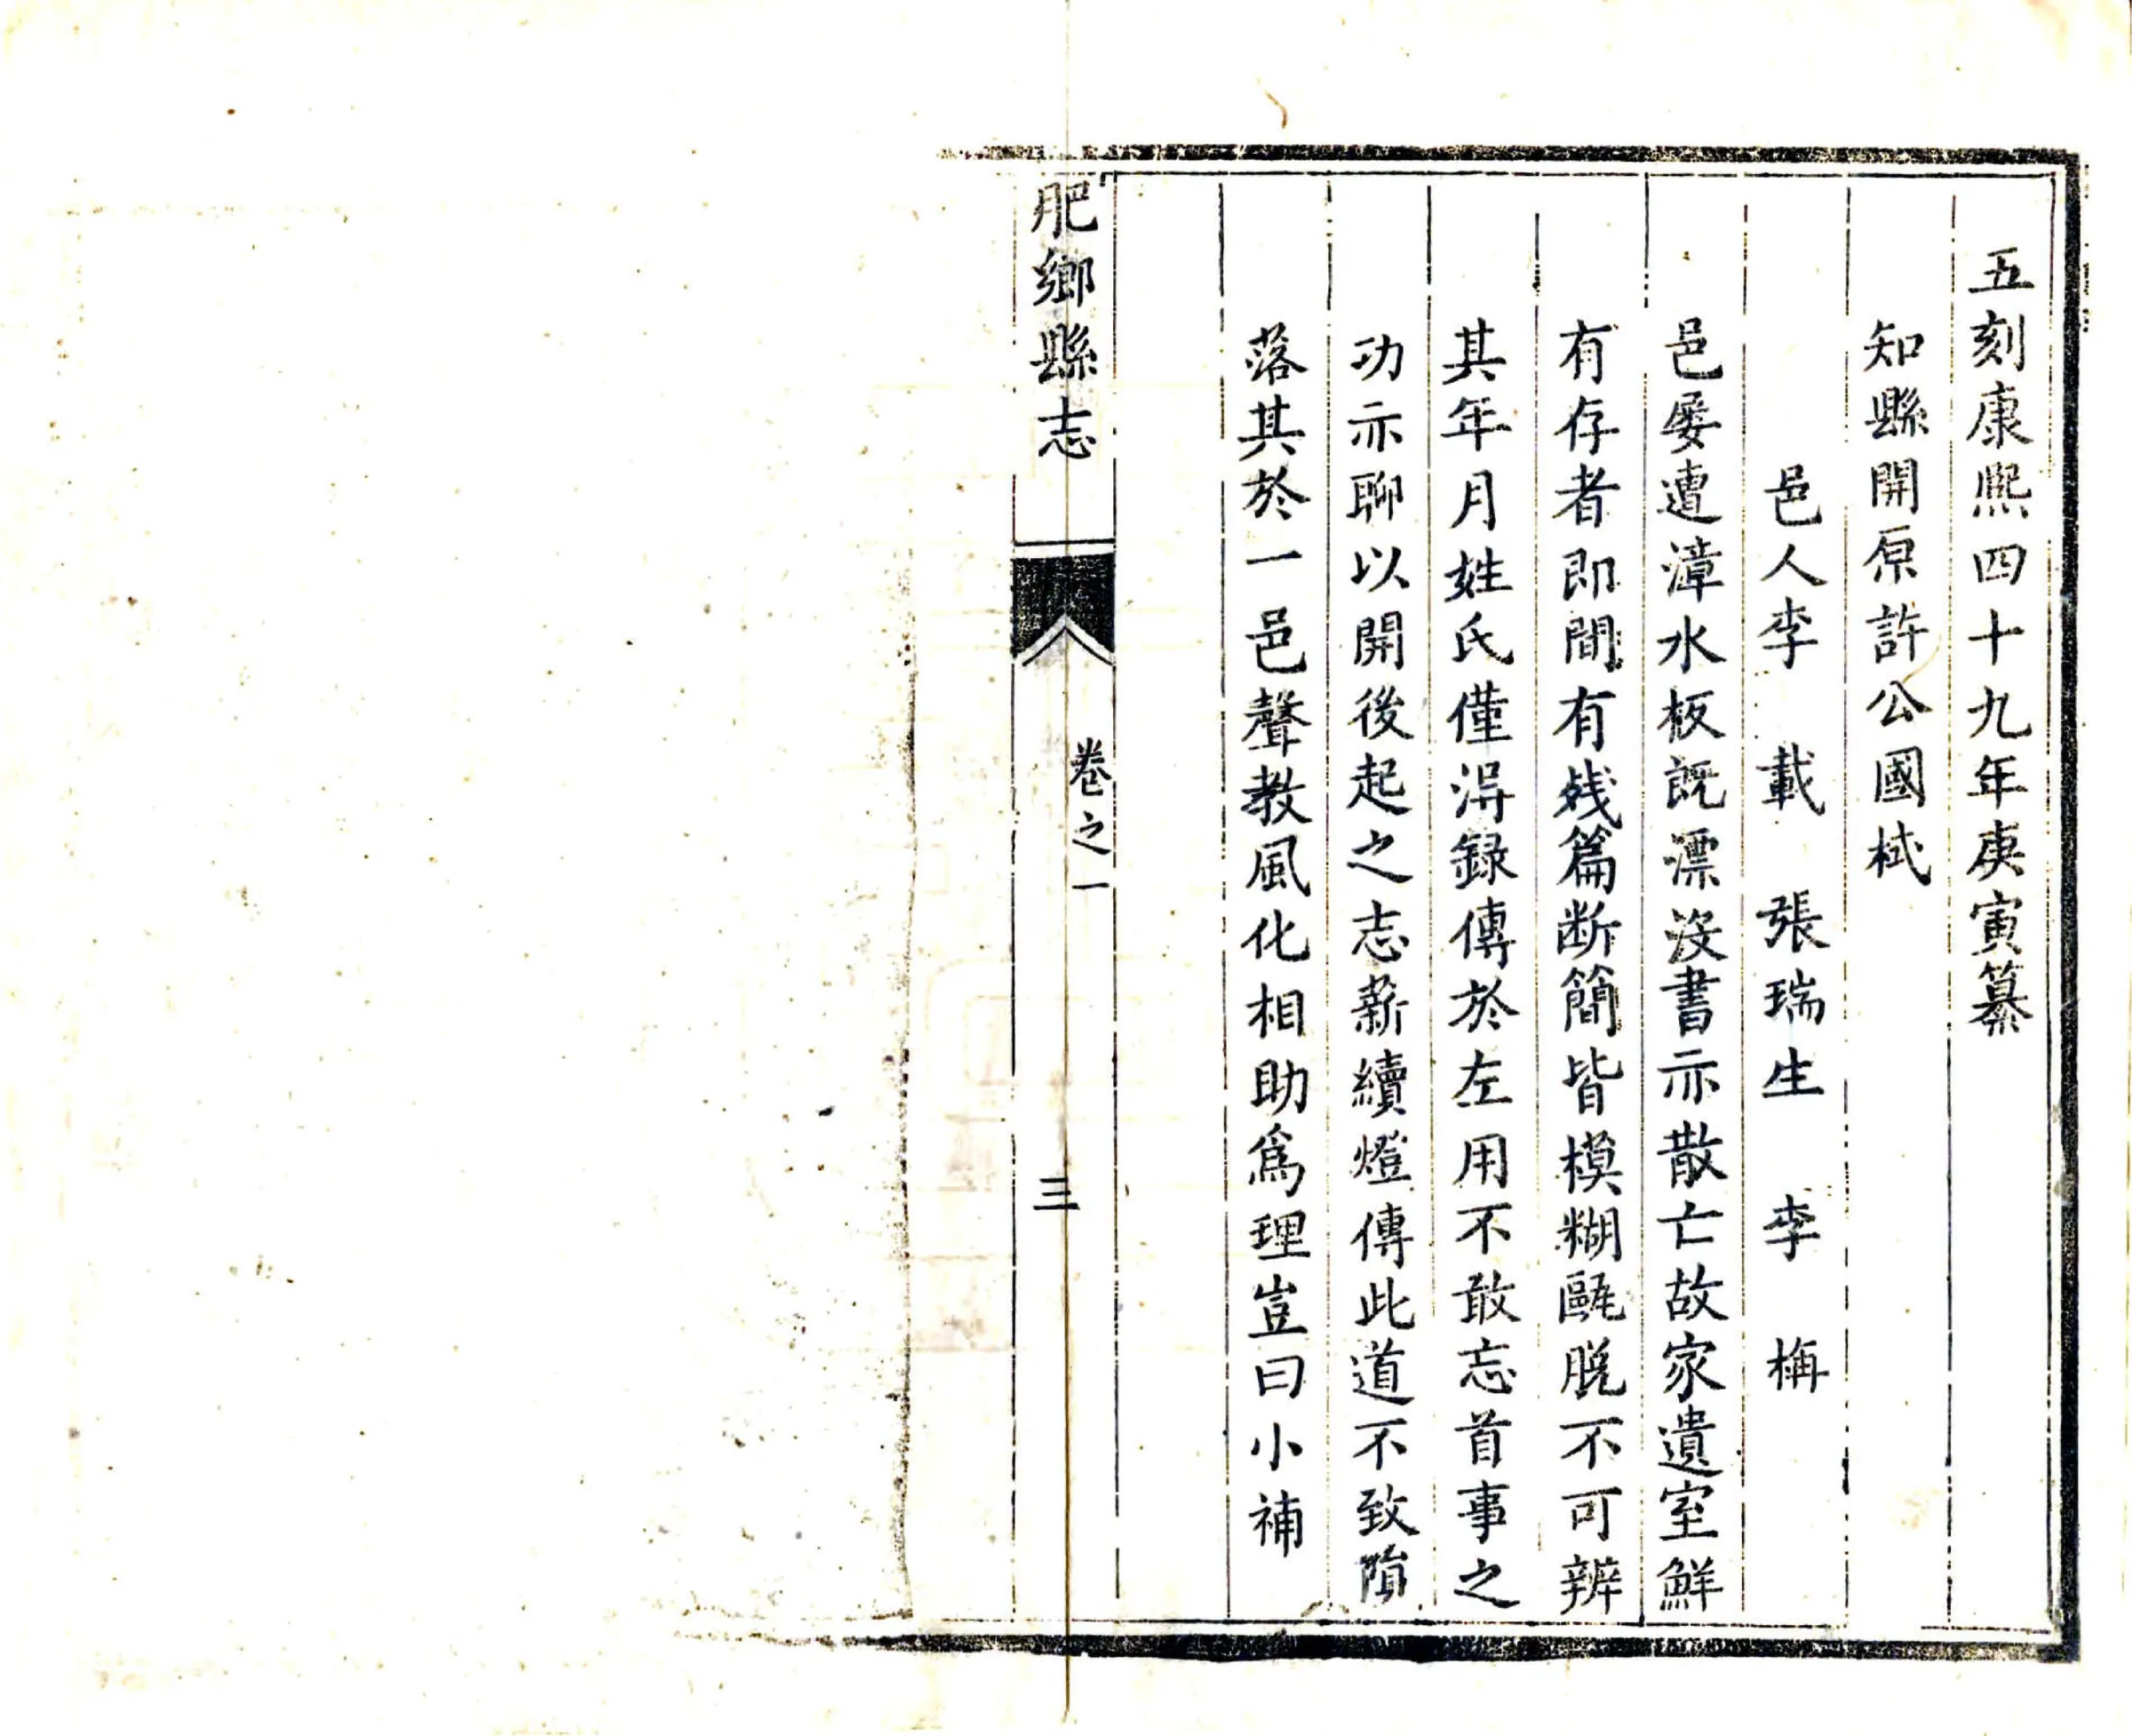 五刻康熙四十九年庚寅纂
知縣開原許公國栻
邑人李　載　張瑞生　李　梅
邑屡遭漳水板既漂沒書亦散亡故家遺室鮮
有存者即間有残篇断簡皆模糊毆脫不可辨
其年月姓氏僅淂録傳於左用不敢忘首事之
功亦聊以開後起之志薪續燈傳此道不致隕
落其於一邑聲教風化相助為理豈曰小補
肥鄉縣志
卷之一
三